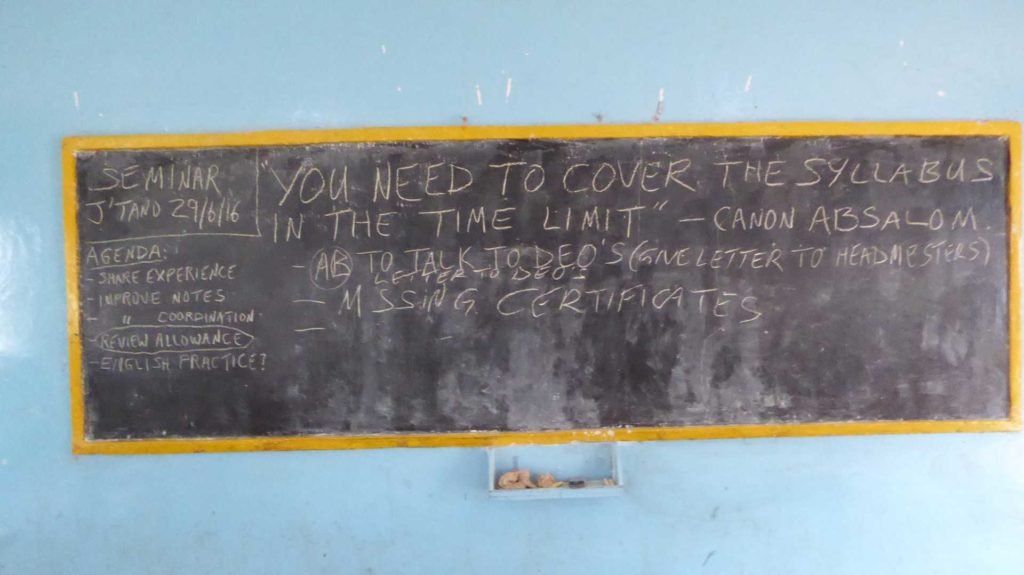 SEMINAR
J'TANO 29/6/16
AGENDA:
- SHARE EXPERIENCE
- IMPROVE NOTES
- " COORDINATION
- REVIEW ALLOWANCE
- ENGLISH PRACTICE?
"YOU NEED TO COVER THE SYLLABUS
IN THE "TIME LIMIT" - CANON ABSALOM.
- AB TO TALK TO DEO'S (GIVE LETTER TO HEADMESTERS)
LETTER TO DEO'S
- MISSING CERTIFICATES
-